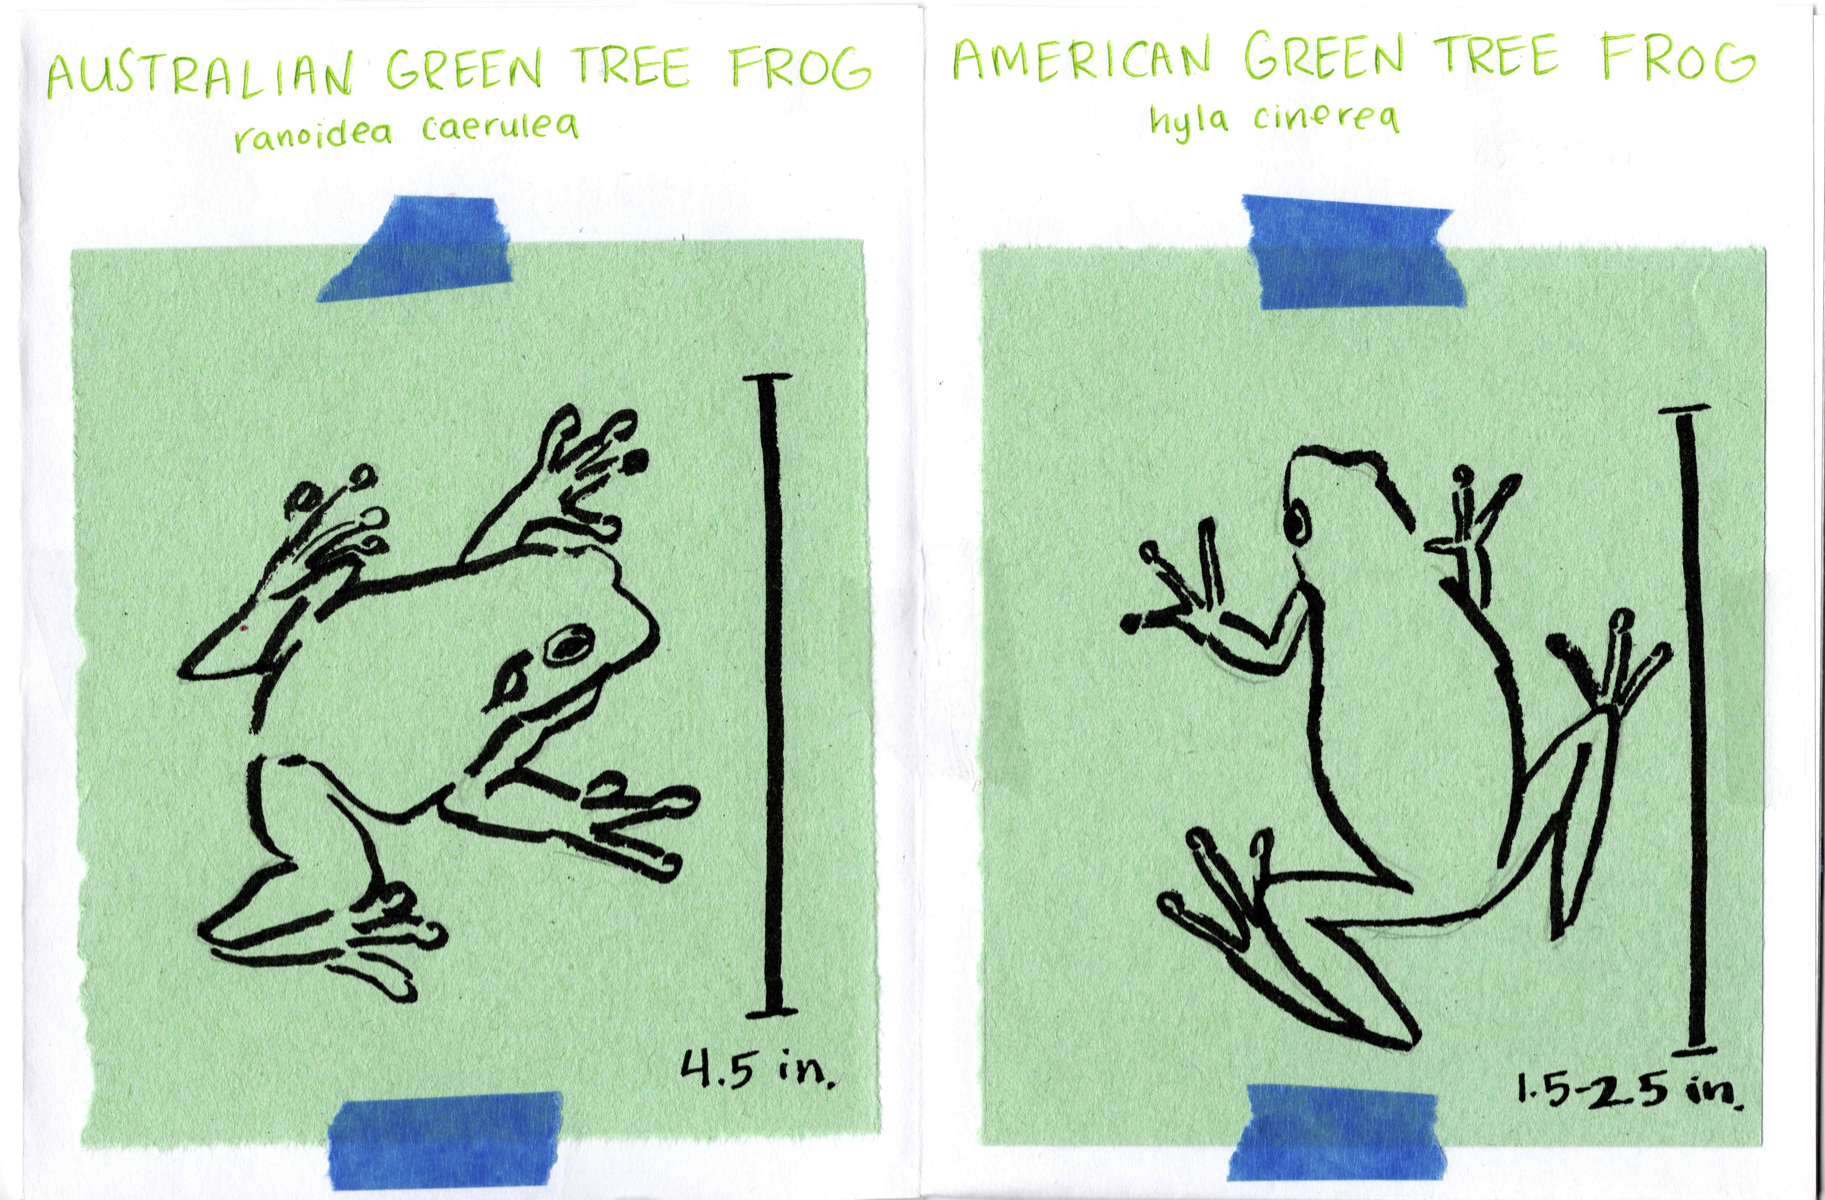 AUSTRALIAN GREEN TREE FROG
ranoidea caerulea
4.5 in.
AMERICAN GREEN TREE FROG
hyla cinerea
1.5-2.5 in.